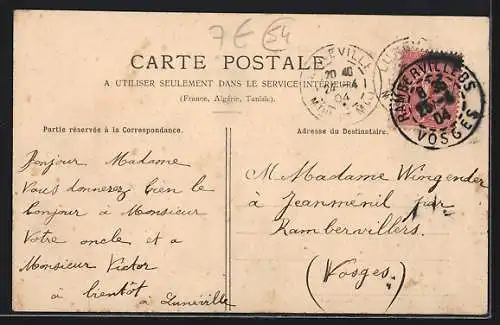 7E 54
CARTE POSTALE
A UTILISER SEULEMENT DANS LE SERVICE INTÉRIEUR
(France, Algérie, Tunisie).
Partie réservée à la Correspondance.
Bonjour Madame
Vous donnerez bien le
bonjour à Monsieur
Votre oncle et a
Monsieur Victor
à bientôt
à Lunéville
Adresse du Destinataire.
M Madame Wingender
à Jeanménil par
Rambervillers.
(Vosges)
20 40
24 4
04
RAMBERVILLERS
04
VOSGES